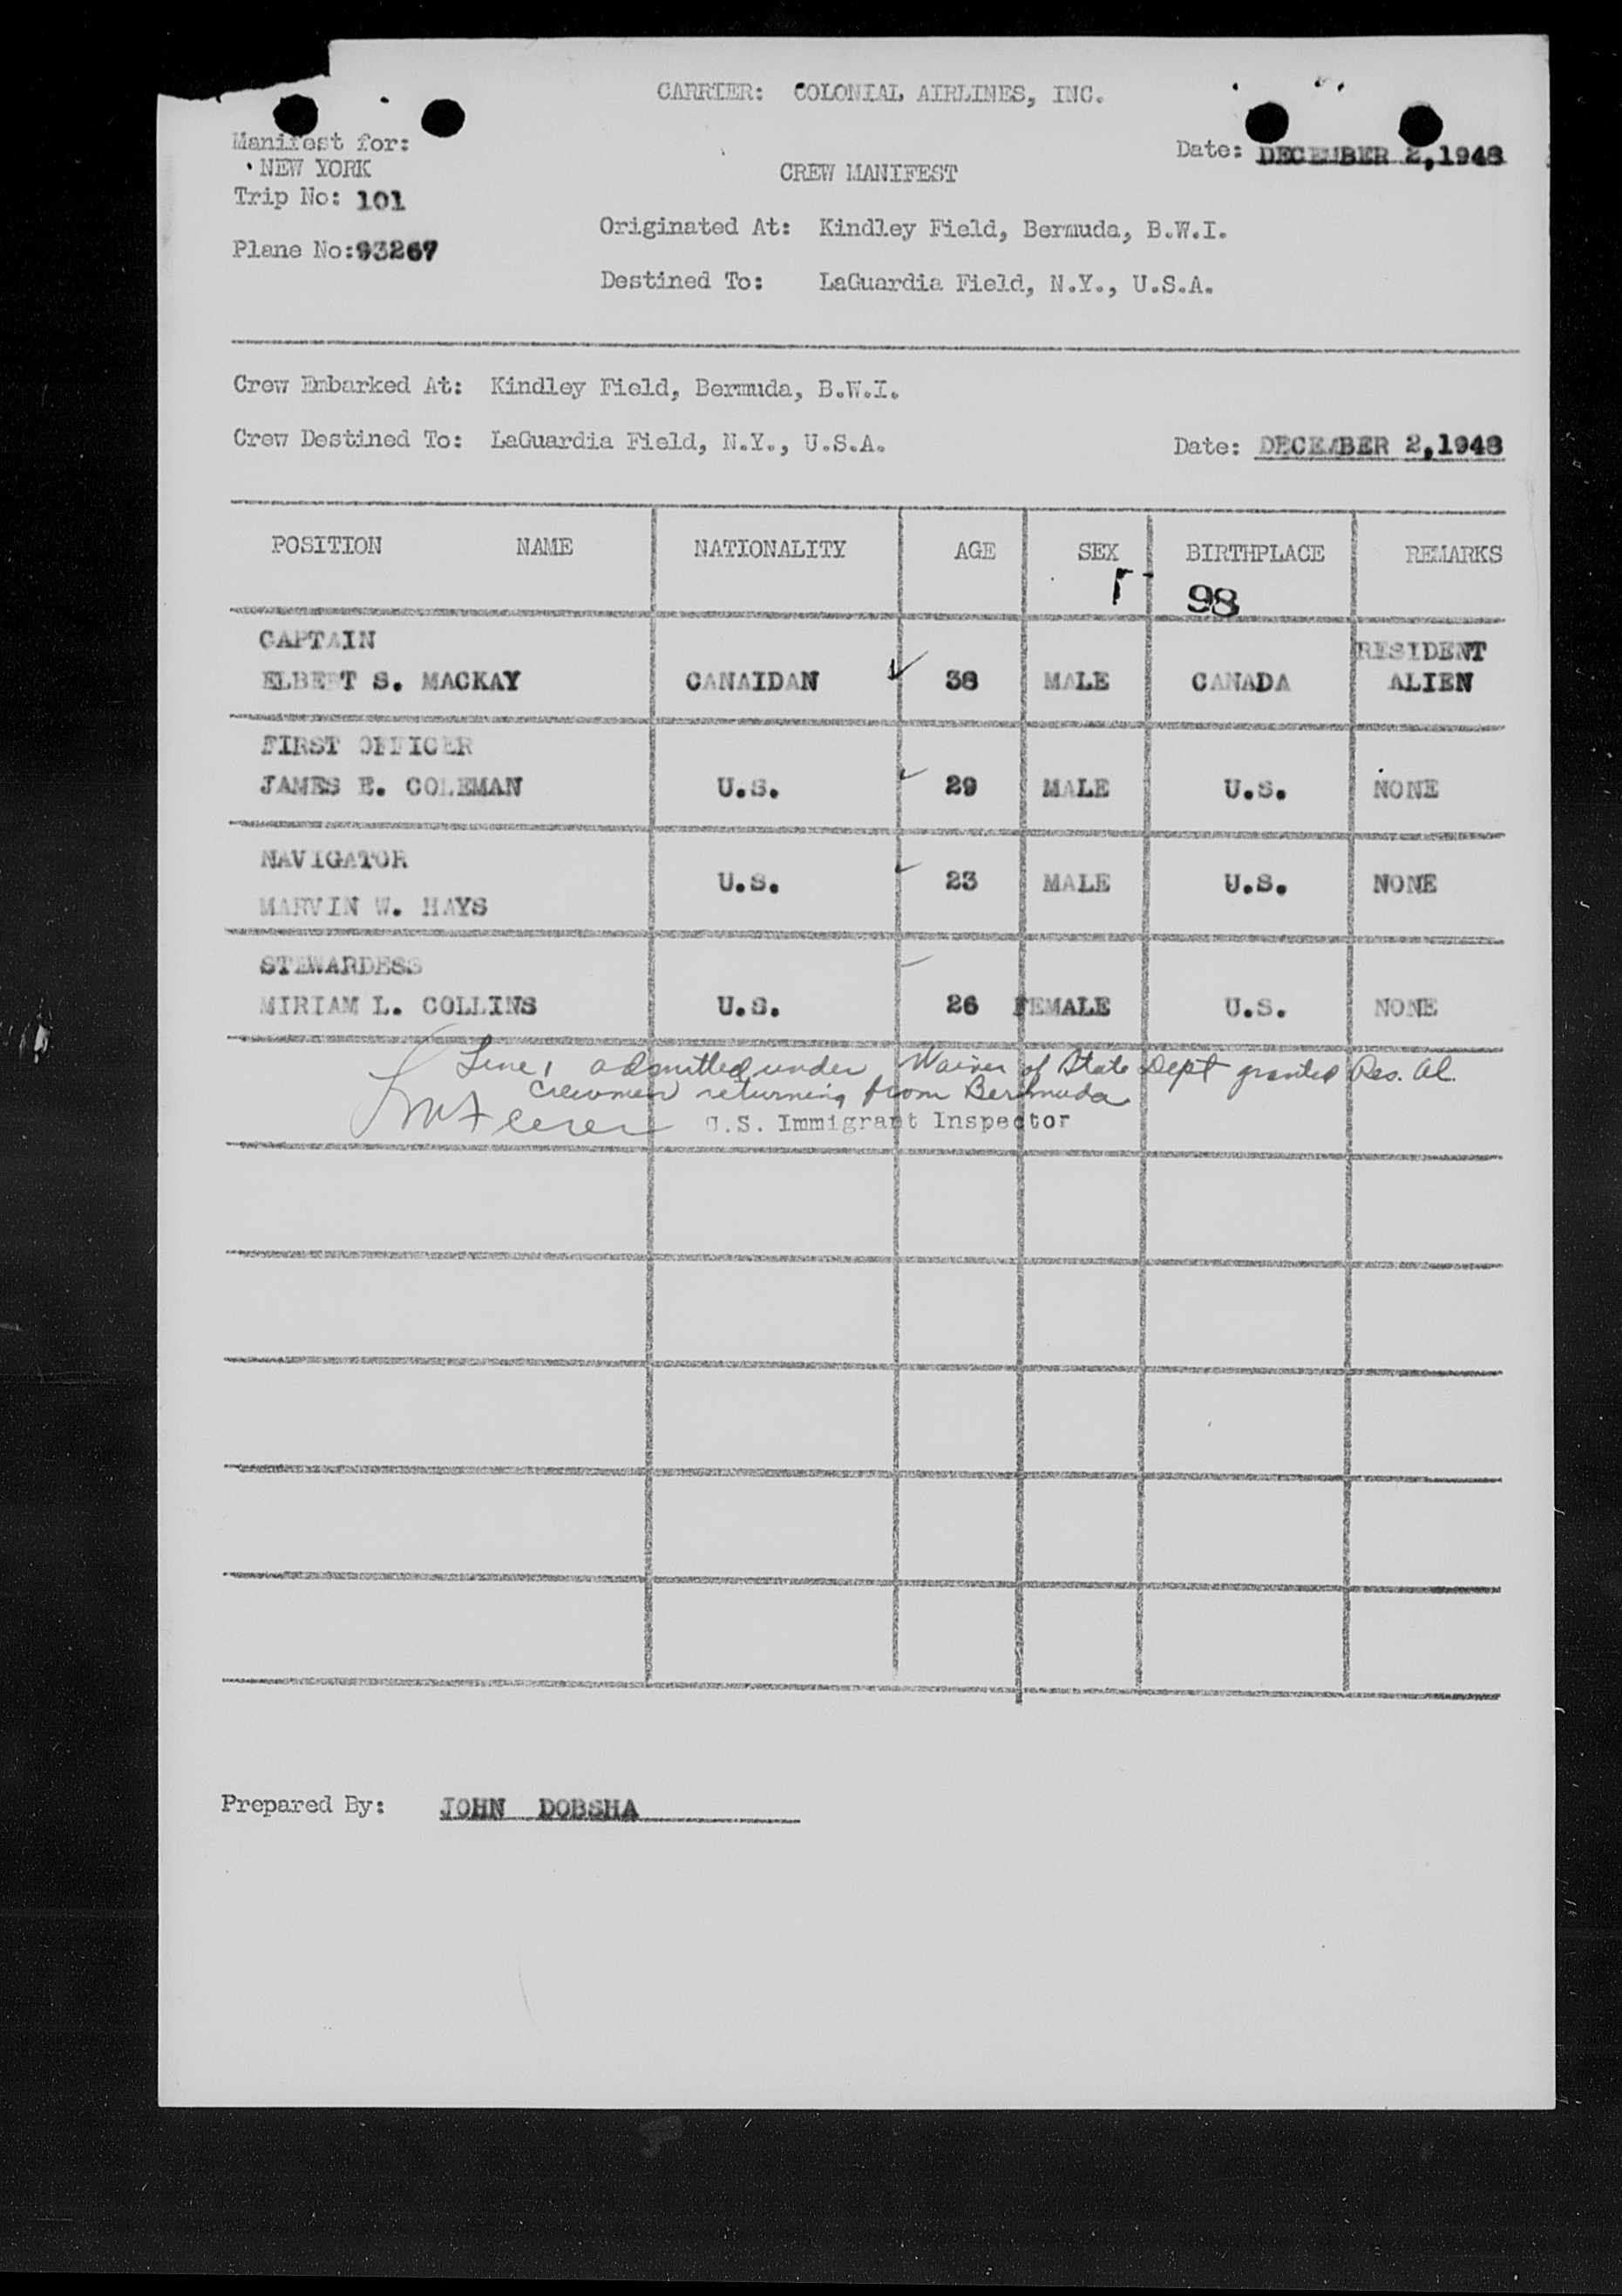 CARRIER: COLONIAL AIRLINES, INC.
Manifest for:
NEW YORK
Date: DECEMBER 2,1948
CREW MANIFEST
Trip No: 101
Originated At: Kindley Field, Bermuda, B.W.I.
Plane No:93267
Destined To: LaGuardia Field, N.Y., U.S.A.
Crew Embarked At: Kindley Field, Bermuda, B.W.I.
Crew Destined To: LaGuardia Field, N.Y., U.S.A. Date: DECEMBER 2,1948
POSITION NAME NATIONALITY AGE SEX BIRTHPLACE REMARKS
98
CAPTAIN RESIDENT
ELBERT S. MACKAY CANAIDAN 38 MALE CANADA ALIEN
FIRST OFFICER
JAMES E. COLEMAN U.S. 29 MALE U.S. NONE
NAVIGATOR
U.S. 23 MALE U.S. NONE
MARVIN W. HAYS
STEWARDESS
MIRIAM L. COLLINS U.S. 26 FEMALE U.S. NONE
Line 1 admitted under Waiver of State Dept granted Res. Al.
crewmen returning from Bermuda
U.S. Immigrant Inspector
Prepared By: JOHN DOBSHA